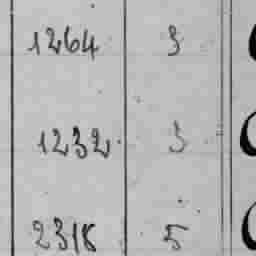 1264 3
1232 3
2318 5